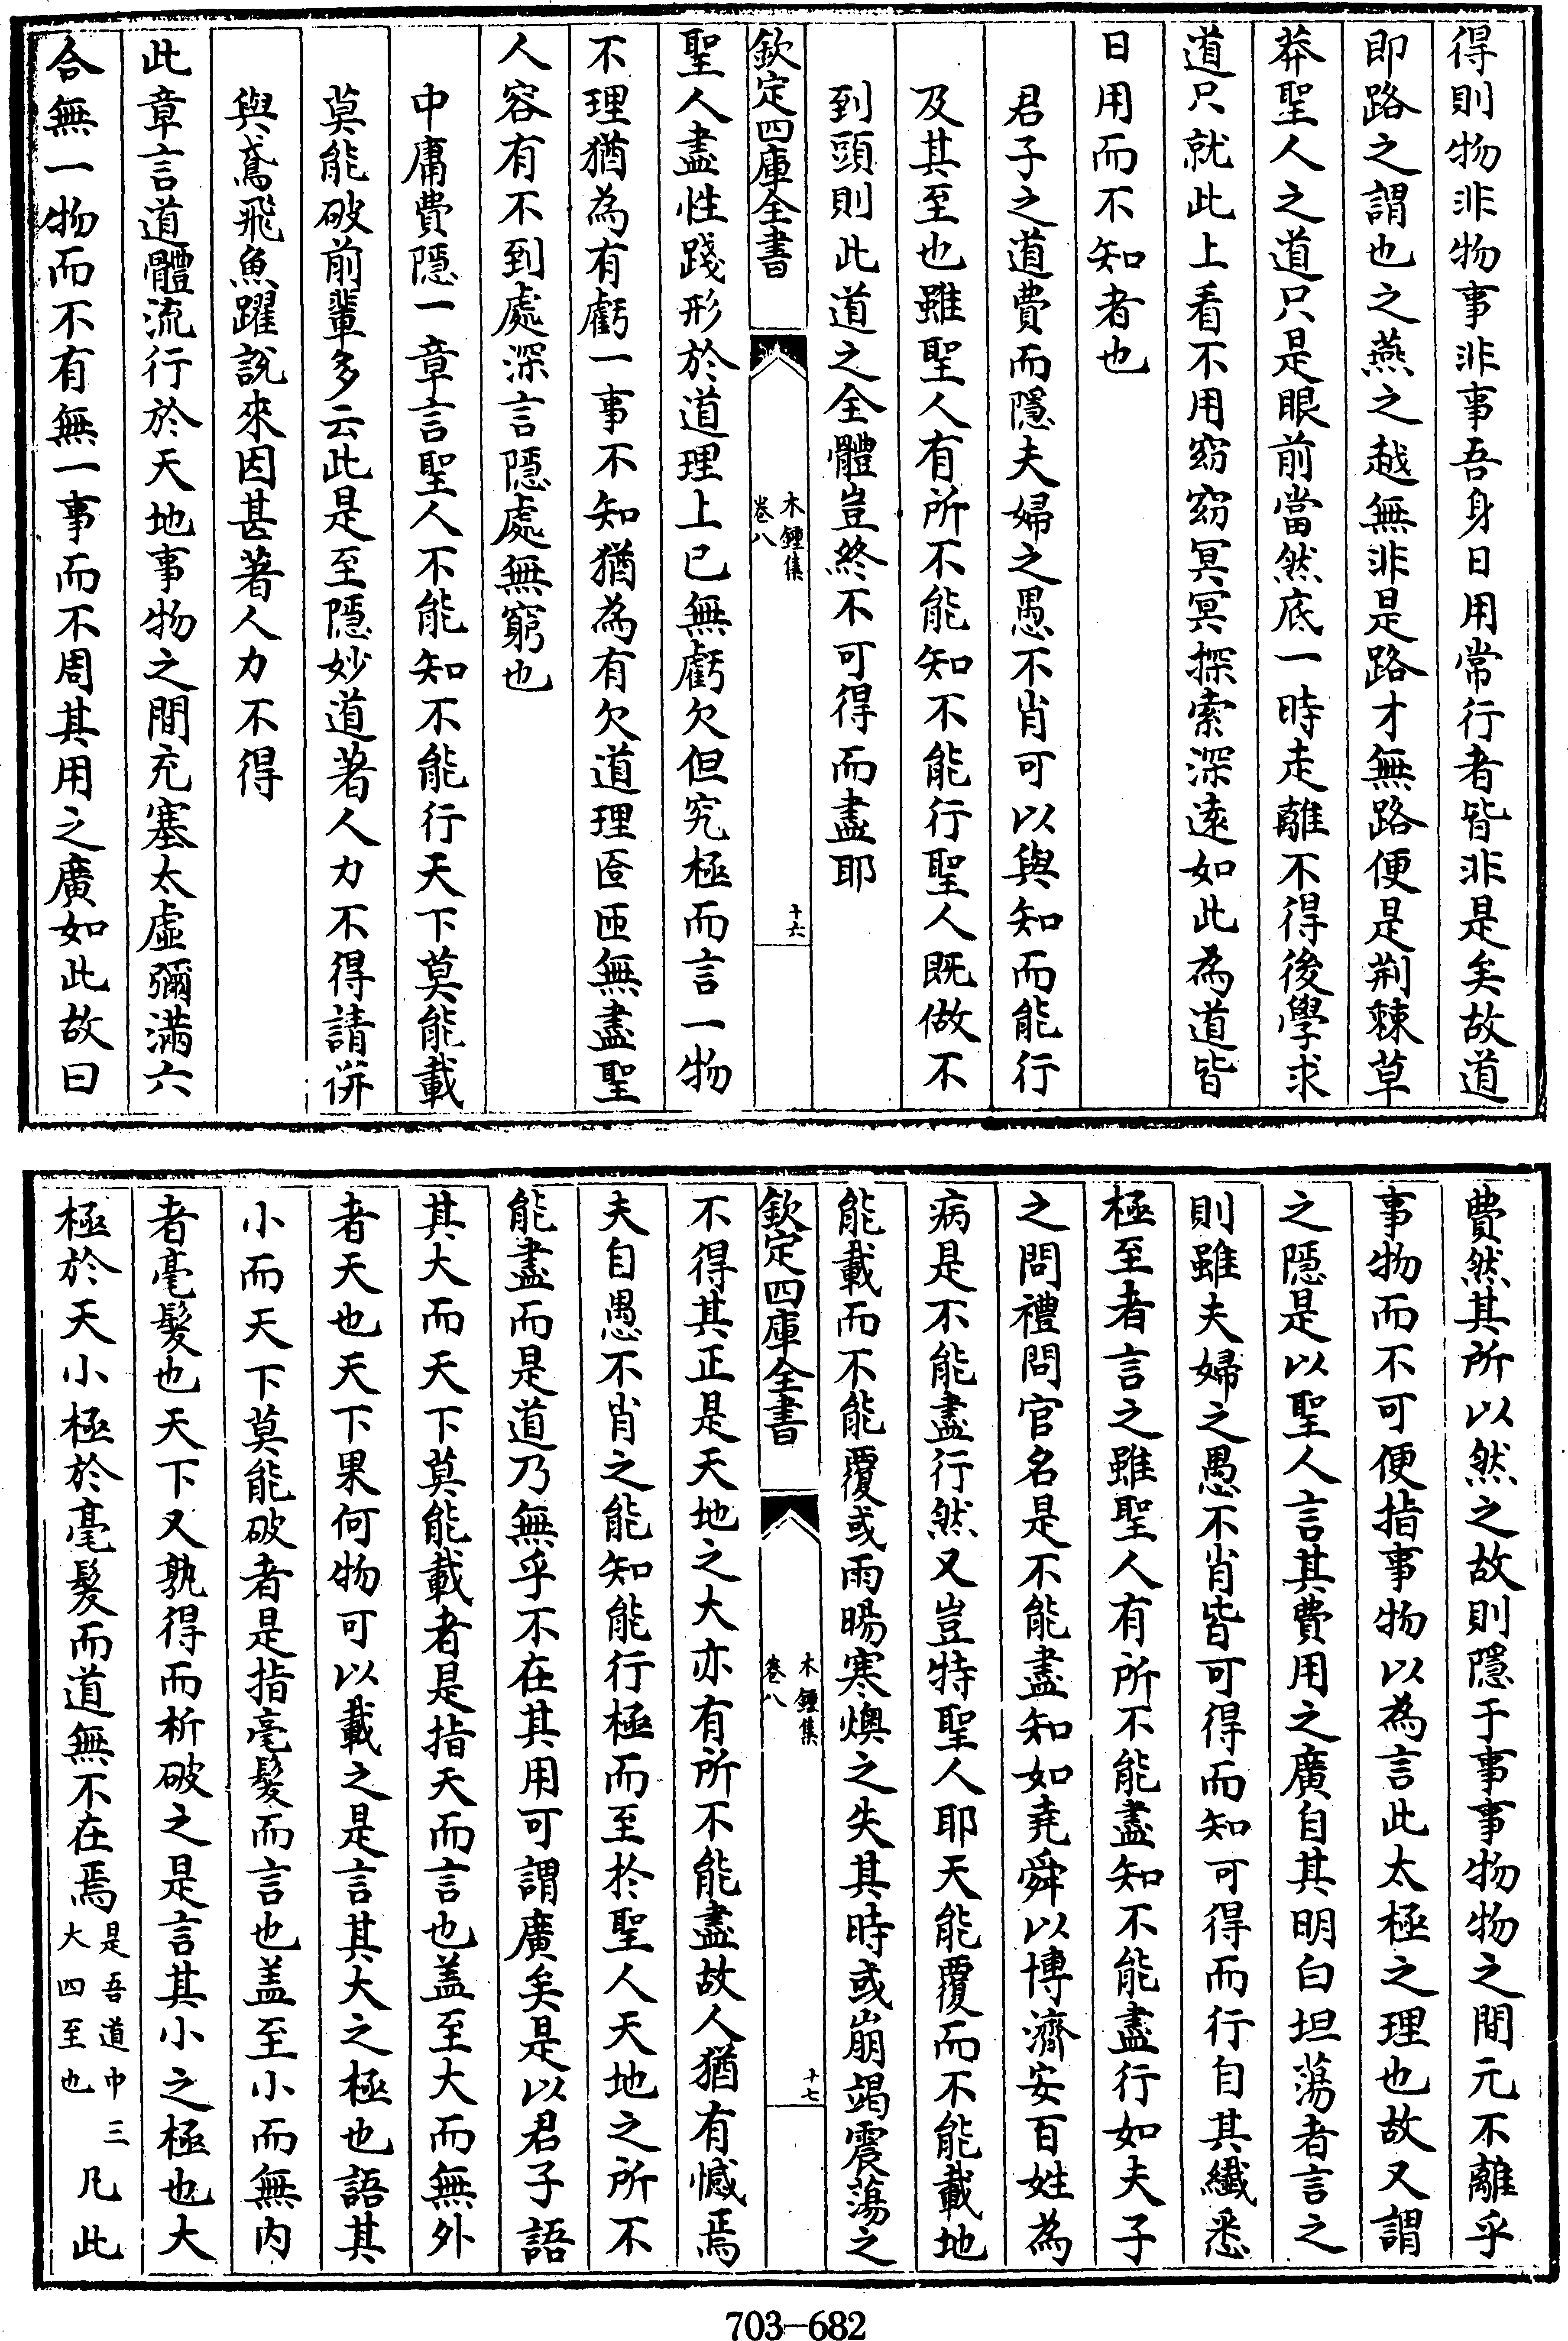 得則物非物事非事吾身日用常行者皆非是矣故道
即路之謂也之燕之越無非是路才無路便是荆棘草
莽聖人之道只是眼前當然底一時走離不得後學求
道只就此上看不用窈窈冥冥探索深遠如此為道皆
日用而不知者也
君子之道費而隱夫婦之愚不肖可以與知而能行
及其至也雖聖人有所不能知不能行聖人既做不
到頭則此道之全體豈終不可得而盡耶
欽定四庫全書
木鍾集
卷八
十六
聖人盡性踐形於道理上已無虧欠但究極而言一物
不理猶為有虧一事不知猶為有欠道理匼匝無盡聖
人容有不到處深言隱處無窮也
中庸費隱一章言聖人不能知不能行天下莫能載
莫能破前輩多云此是至隱妙道著人力不得請併
與鳶飛魚躍說來因甚著人力不得
此章言道體流行於天地事物之間充塞太虛彌滿六
合無一物而不有無一事而不周其用之廣如此故曰
費然其所以然之故則隱于事事物物之間元不離乎
事物而不可便指事物以為言此太極之理也故又謂
之隱是以聖人言其費用之廣自其明白坦蕩者言之
則雖夫婦之愚不肖皆可得而知可得而行自其纖悉
極至者言之雖聖人有所不能盡知不能盡行如夫子
之問禮問官名是不能盡知如堯舜以博濟安百姓為
病是不能盡行然又豈特聖人耶天能覆而不能載地
能載而不能覆或雨暘寒燠之失其時或崩竭震蕩之
欽定四庫全書
木鍾集
卷八
十七
不得其正是天地之大亦有所不能盡故人猶有憾焉
夫自愚不肖之能知能行極而至於聖人天地之所不
能盡而是道乃無乎不在其用可謂廣矣是以君子語
其大而天下莫能載者是指天而言也盖至大而無外
者天也天下果何物可以載之是言其大之極也語其
小而天下莫能破者是指毫髮而言也盖至小而無内
者毫髮也天下又孰得而析破之是言其小之極也大
極於天小極於毫髮而道無不在焉是吾道中三大四至也凡此
703-682